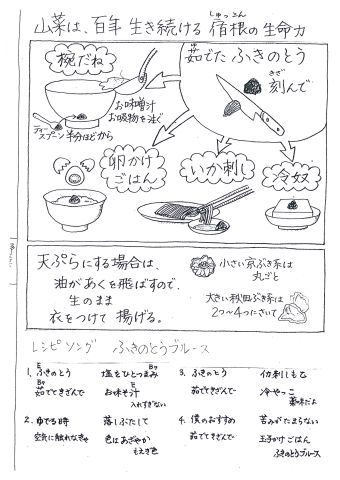 山菜は、百年生き続ける宿根の生命力
しゅっこん
椀だね
お味噌汁
お吸物を注ぐ
ティースプーン半分ほどから
茹でたふきのとう
きざ
刻んで
卵かけ
ごはん
いか刺し
冷奴
天ぷらにする場合は、
油があくを飛ばすので、
生のまま
衣をつけて 揚げる。
小さい京ぶき系は
丸ごと
大きい秋田ぶき系は
2つ〜4つにさいて
レシピソング ふきのとうブルース
E
1. ふきのとう 塩をひとつまみ
B7
B7
茹でてきざんで お味そ汁
E
入れすぎない
2. ゆでる時 落しぶたして
空気に触れなきゃ 色はあざやか
もえぎ色
3. ふきのとう イカ刺しもよ
茹でてきざんで 冷やっこ
薬味だよ
4. 僕のおすすめ 苦みがたまらない
茹でてきざんで 玉子かけごはん
ふきのとうブルース